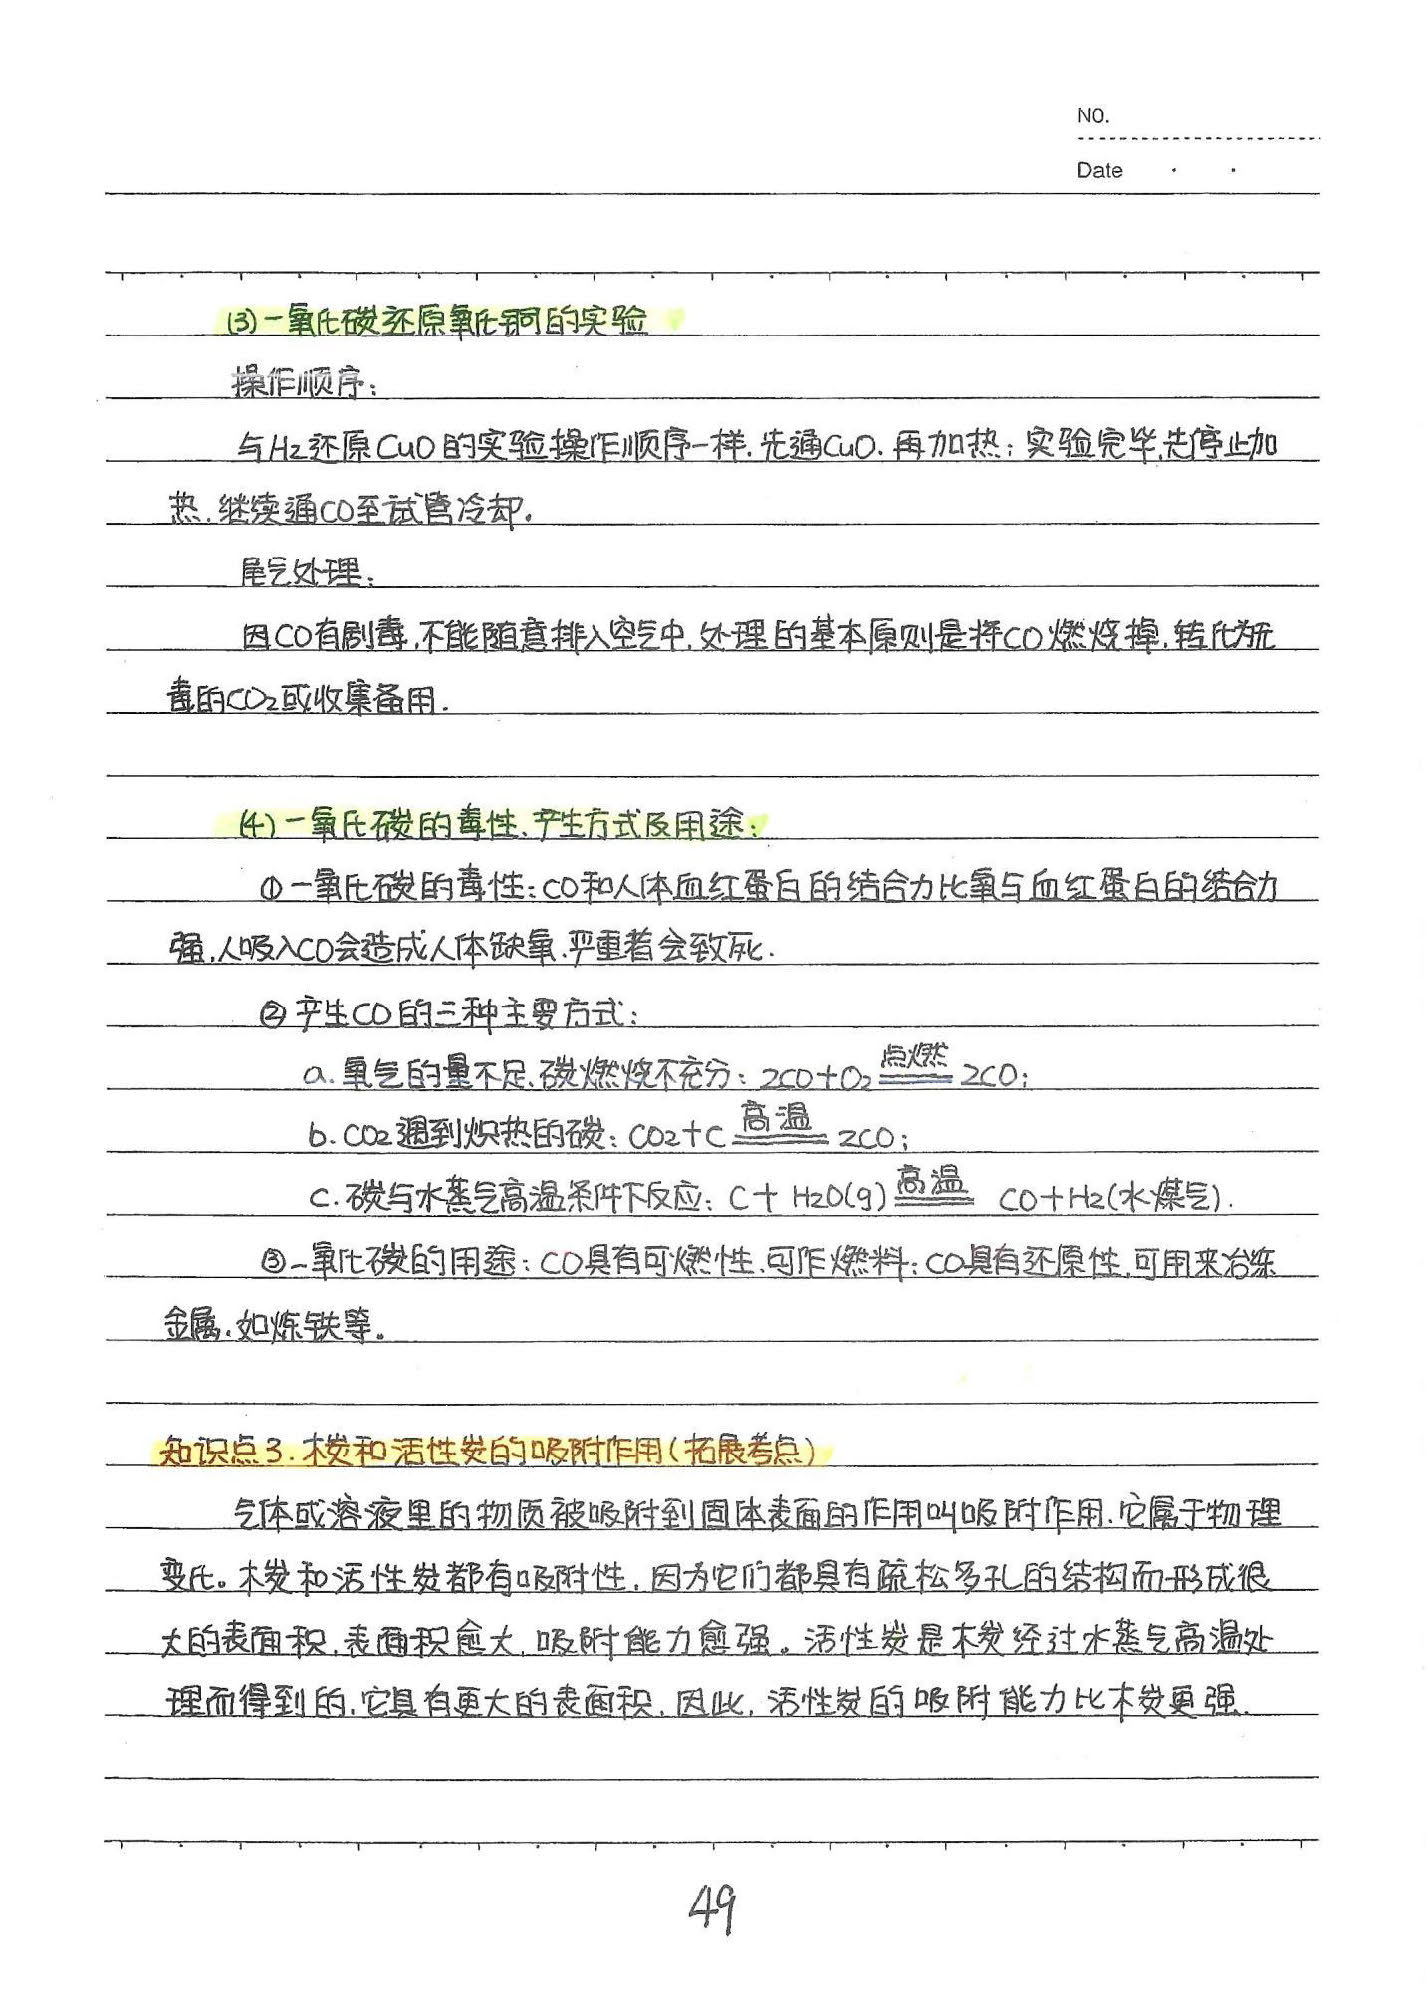 NO.
Date
(3)一氧化碳还原氧化铜的实验
操作顺序:
与H₂还原CuO的实验操作顺序一样.先通CuO.再加热;实验完毕.先停止加
热.继续通CO至试管冷却.
尾气处理:
因CO有剧毒.不能随意排入空气中.处理的基本原则是将CO燃烧掉.转化为无
毒的CO₂或收集备用.
(4)一氧化碳的毒性、产生方式及用途:
①一氧化碳的毒性:CO和人体血红蛋白的结合力比氧与血红蛋白的结合力
强.人吸入CO会造成人体缺氧.严重着会致死.
②产生CO的三种主要方式:
a.氧气的量不足.碳燃烧不充分: 2CO+O₂ 点燃 2CO;
b.CO₂遇到炽热的碳: CO₂+C 高温 2CO;
c.碳与水蒸气高温条件下反应: C+H₂O(g) 高温 CO+H₂(水煤气).
③一氧化碳的用途:CO具有可燃性.可作燃料;CO具有还原性.可用来冶练
金属.如炼铁等。
知识点3.木炭和活性炭的吸附作用(拓展考点)
气体或溶液里的物质被吸附到固体表面的作用叫吸附作用.它属于物理
变化。木炭和活性炭都有吸附性.因为它们都具有疏松多孔的结构而形成很
大的表面积.表面积愈大.吸附能力愈强。活性炭是木炭经过水蒸气高温处
理而得到的.它具有更大的表面积.因此.活性炭的吸附能力比木炭更强.
49